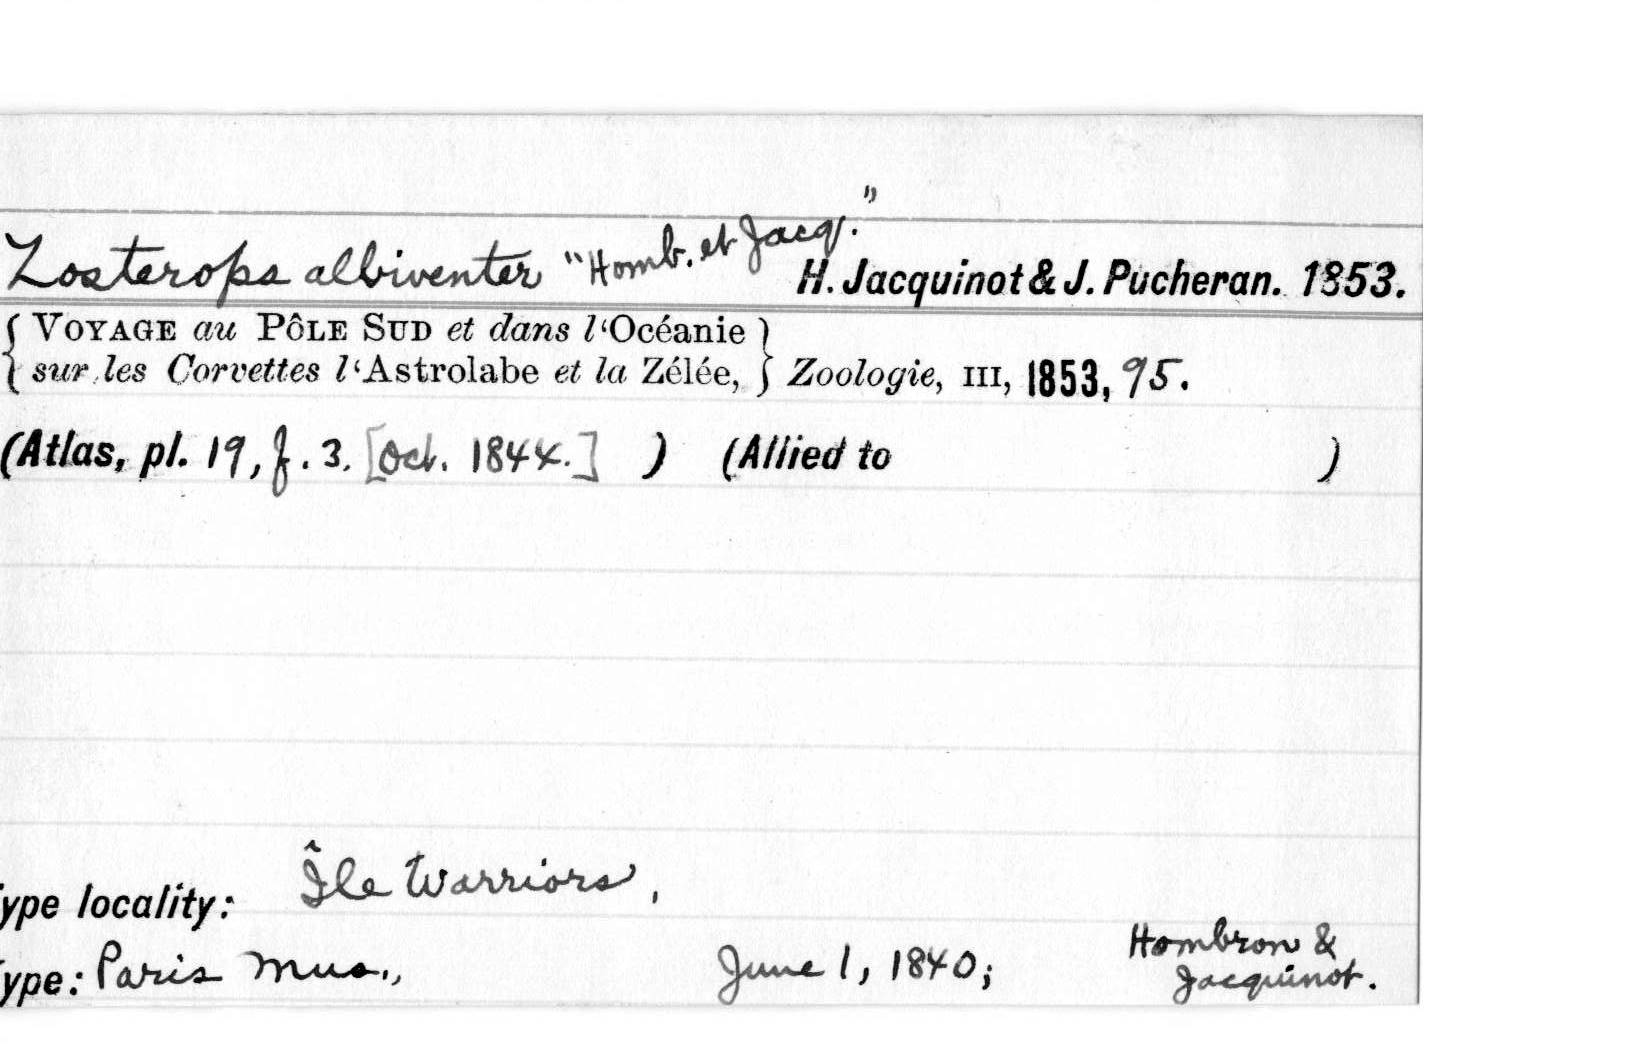 Zosterops albiventer "Homb. et Jacq." H. Jacquinot & J. Pucheran. 1853.
{ VOYAGE au PÔLE SUD et dans l‘Océanie }
{ sur les Corvettes l‘Astrolabe et la Zélée, } Zoologie, III, 1853, 95.
(Atlas, pl. 19, f. 3. [Oct. 1844.] ) (Allied to )
ype locality: Île Warriors,
ype: Paris Mus., June 1, 1840; Hombron &
Jacquinot.